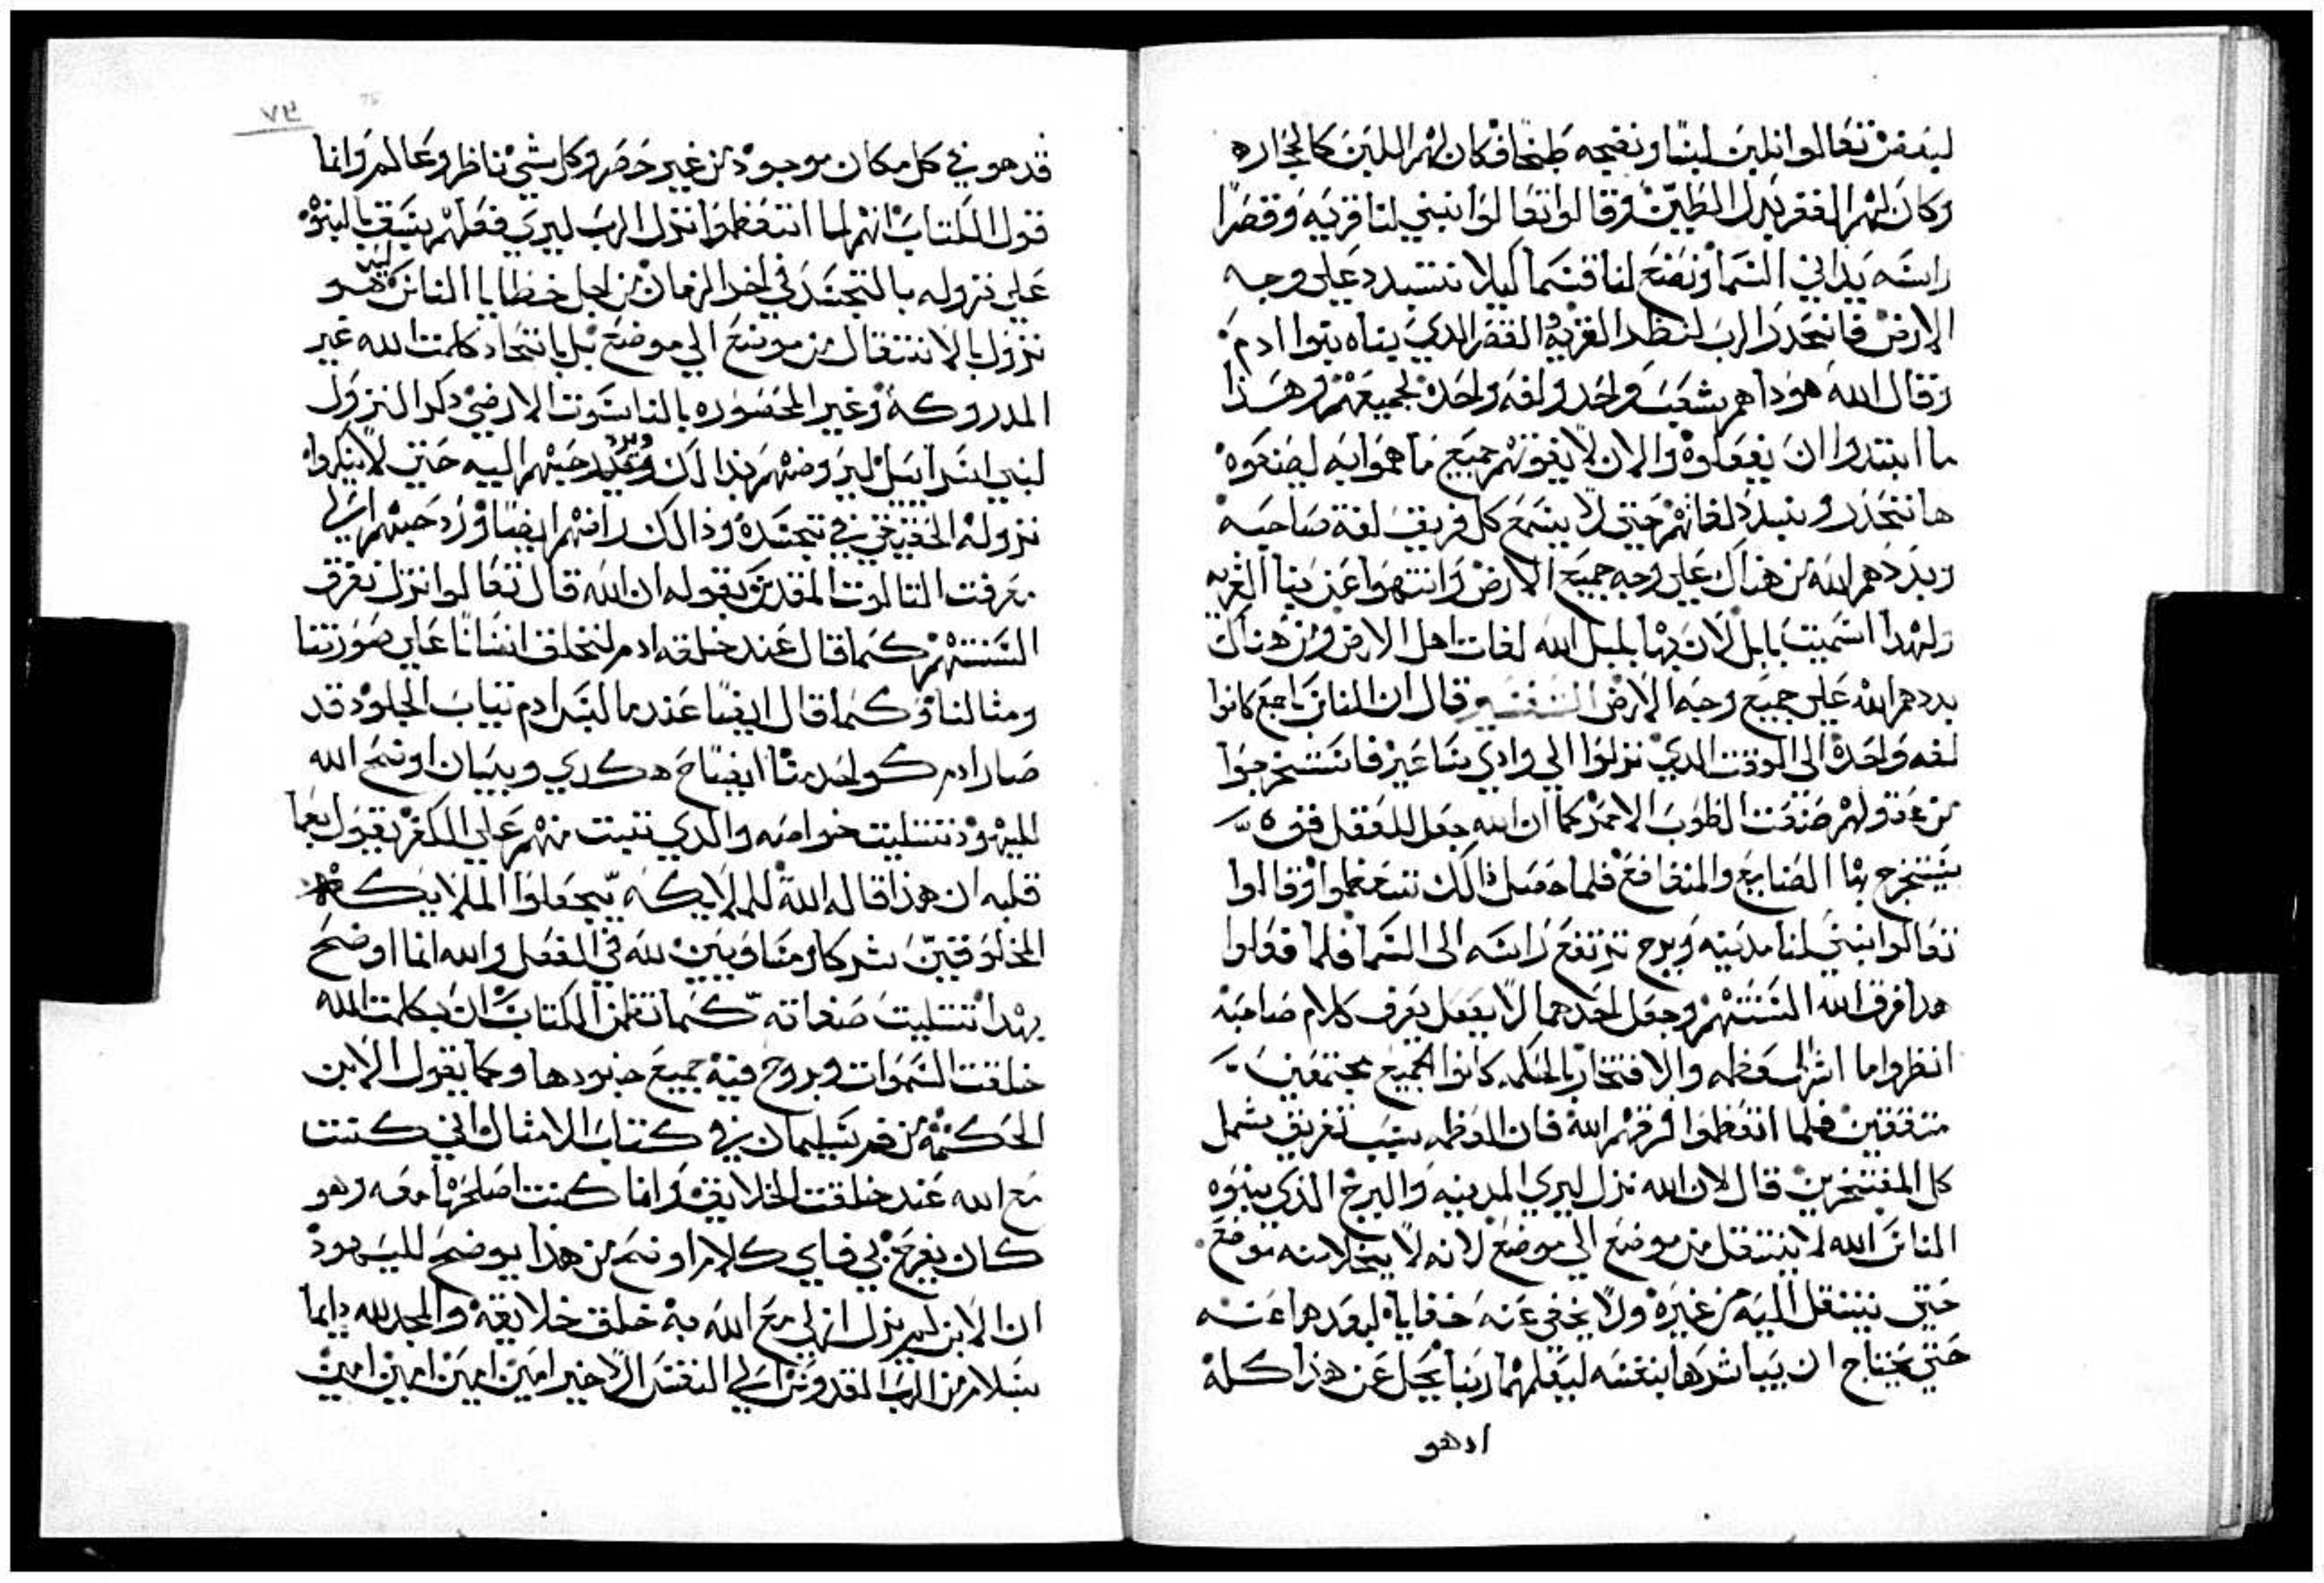 لبعض تعالوا نلبن لبنا ونضجه طبخا فكان لهم اللبن كالحجاره
وكان لهم القفر بدل الطين وقالوا تعالوا نبني لنا قريه وقصرا
راسه يداني السما ونصنع لنا قسما كيلا نتبدد علي وجه
الارض فانحدر الرب لينظر القريه والقصر الدي بناه بنوا ادم
وقال الله هودا هم شعب واحد ولغه واحده لجميعهم وهذا
ما ابتدوا ان يفعلوه والان لا يفوتهم جميع ما هموا به ليصنعوه
هانتحدر ونبدد لغاتهم حتي لا يسمع كل فريق لغة صاحبه
وبددهم الله من هناك علي وجه جميع الارض وانتهوا عن بنا القريه
ولهدا اسميت بابل لان بها بلبل الله لغات اهل الارض ومن هناك
بددهم الله علي جميع وجه الارض التفسير قال ان الناس اجمع كانوا
لغه واحدة الي الوقت الدي نزلوا الي وادي شناعير فاستخرجوا
صنعت الطوب الاحمر كما ان الله جعل للعقل قوه
يستخرج بها الصنايع والمنافع فلما حصل ذالك تعظموا وقالوا
تعالوا نبني لنا مدينه وبرج ترتفع راسه الى السما فلما فعلوا
هدا فرق الله السنتهم وجعل احدهما لا يعرف كلام صاحبه
انظروا ما اشر العظمه والافتخار كانوا الجميع مجتمعين
متفقين فلما اتعظموا فرقهم الله فان العظمه سبب تفريق يشمل
كل المفتخرين قال لان الله نزل ليري المدينه والبرج الذي بنوه
الناس الله لا ينتقل من موضع الي موضع لانه لا يخلا منه موضع
حتي ينتقل اليه من غيره ولا يخفي عنه خفاياه
حتي يحتاج ان يباشرها بنفسه ليعلمها ربنا يجل عن هذا كله
ادهو
٧٣
قدهو في كل مكان موجود من غير حصر وكل شي ناظر وعالم وانما
قول الكتاب انهم لما اتعظموا نزل الرب ليري فعلهم يسبق بالنبوه
علي نزوله بالتجسد في اخر الزمان من اجل خطايا الناس ليس هو
نزول بالانتقال من موضع الي موضع بل باتحاد كلمت الله غير
المدروكه وغير المحسوره بالناسوت الارضي دكر النزول
لبني اسرايل ليروضهم بذالك ويرد حبهم اليه حتي لا ينكروا
نزوله الحقيقي في تجسده وذالك رافهم ايضا ورد حبهم الي
معرفت التالوت المقدس بقوله ان الله قال تعالوا ننزل نفرق
السنتهم كما قال عند خلقه ادم لنخلق انسانا علي صورتنا
ومثالنا وكما قال ايضا عندما البس ادم تياب الجلود قد
صار ادم كواحد منا ايضاح هكدي وبيان اوضح الله
لليهود تتليت خواصه والدي تتبت منهم علي الكفر بقول
قلبه ان هذا قاله الله للملايكه يجعلوا الملايكه
المخلوقين شركا لله في الفعل والله انما اوضح
بهدا تتليت صفاته كما تضمن الكتاب ان بكلمت الله
خلقت السموات وبروح فيه جميع جنودها وكما يقول الابن
الحكمه من فم سليمان في كتاب الامثال اني كنت
مع الله عند خلقت الخلايق وانا كنت اصلحها معه وهو
كان يفرح بي فاي كلام اوضح من هذا يوضح لليهود
ان الابن لم يزل ازلي مع الله به خلق خلايقه والمجد لله دايما
بسلام من الرب القدوس الي النفس الاخير امين امين امين امين